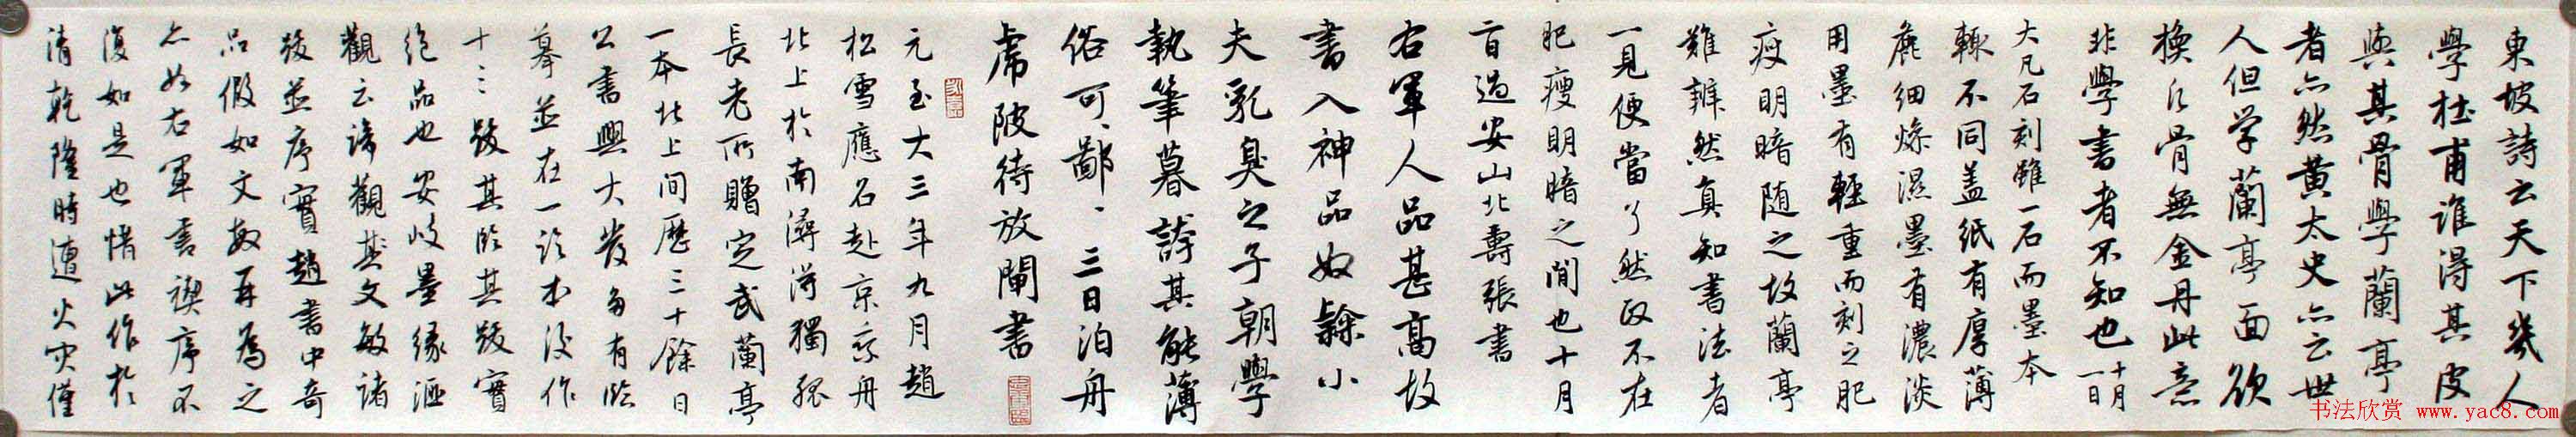 東坡詩云天下幾人
學杜甫誰得其皮
與其骨學蘭亭
者亦然黄太史亦云世
人但学蘭亭面欲
換凡骨無金丹此意
非學書者不知也十月一日
大凡石刻雖一石而墨本
輒不同盖紙有厚薄
麁细燥濕墨有濃淡
用墨有輕重而刻之肥
瘦明暗随之故蘭亭
難辨然真知書法者
一見便當了然政不在
肥瘦明暗之間也十月
百過安山北壽張書
右軍人品甚高故
書入神品奴隸小
夫乳臭之子朝學
執筆暮誇其能薄
俗可、鄙、三日泊舟
虎陂待放閘書
元至大三年九月趙
松雪應召赴京乘舟
北上於南潯淂獨孤
長老所贈定武蘭亭
一本北上间歷三十餘日
公書興大發多有臨
摹並在一診本後作
十三跋其臨其跋實
绝品也安岐墨缘滙
觀云諦觀其文敏諸
跋並序實趙書中奇
品假如文敏再為之
亦如右軍書禊序不
復如是也惜此作於
清乾隆時遭火灾僅
书法欣赏 www.yac8.com